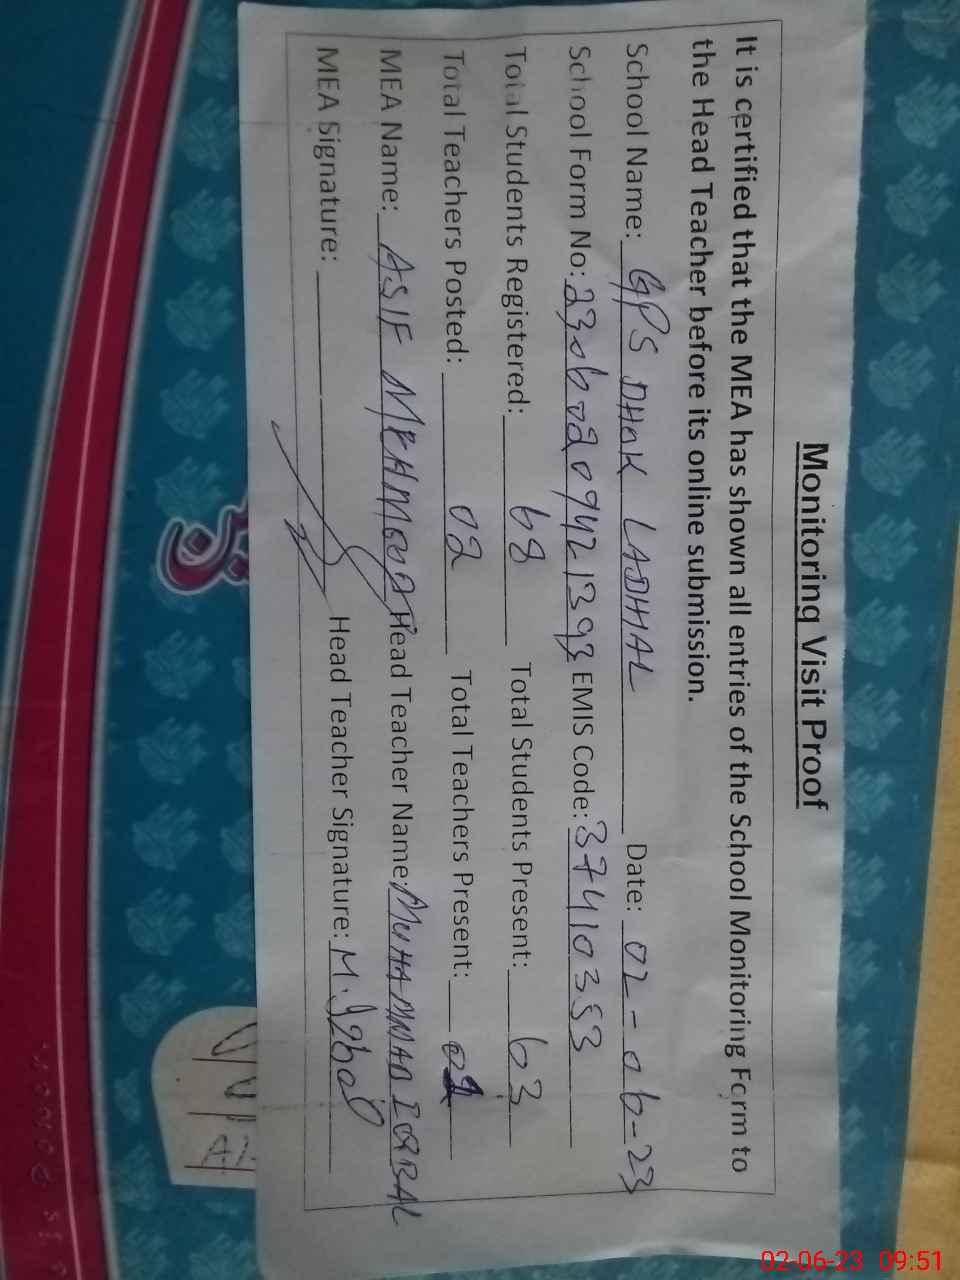 Monitoring Visit Proof
It is certified that the MEA has shown all entries of the School Monitoring Form to
the Head Teacher before its online submission.
School Name: GPS DHOK LADHAL Date: 02-06-23
School Form No: 23060209421393 EMIS Code: 37410353
Total Students Registered: 68 Total Students Present: 63
Total Teachers Posted: 02 Total Teachers Present:
MEA Name: ASIF MEHMOOD Head Teacher Name: MUHAMMAD IQBAL
MEA Signature: Head Teacher Signature: M. Iqbal
02-06-23 09:51